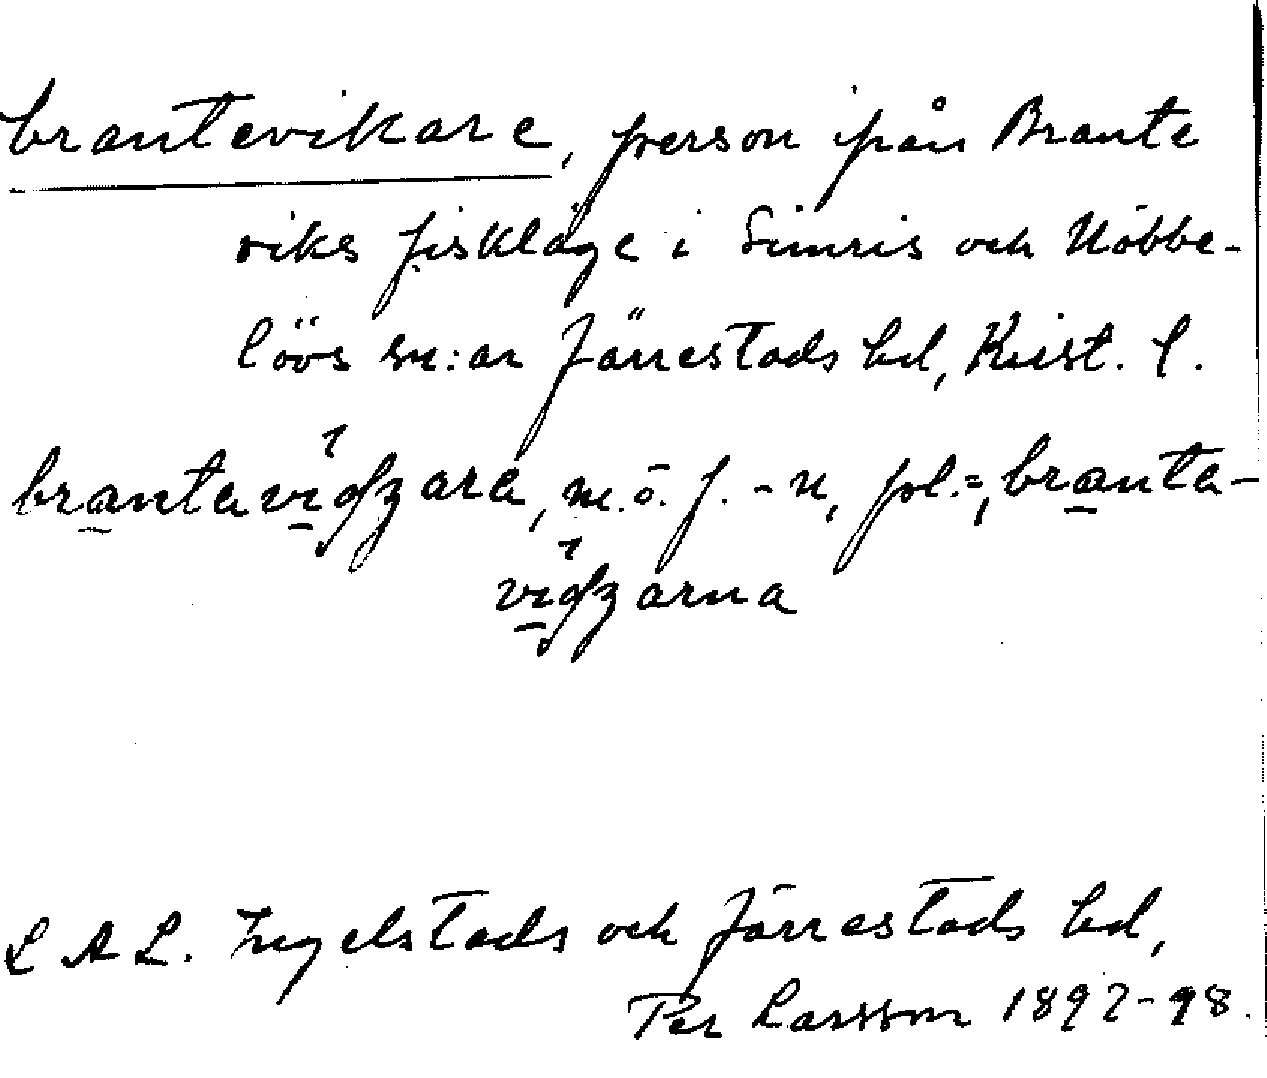 brantevikare, person från Brante
viks fiskläge i Simris och Nöbbe-
löös sn:ar Järrestads hd, Krist. l.
brantavigzara, m.o. f. -n, pl.=, branta-
vigzarna
L A L. Ingelstads och Järrestads hd,
Per Larsson 1892-98.